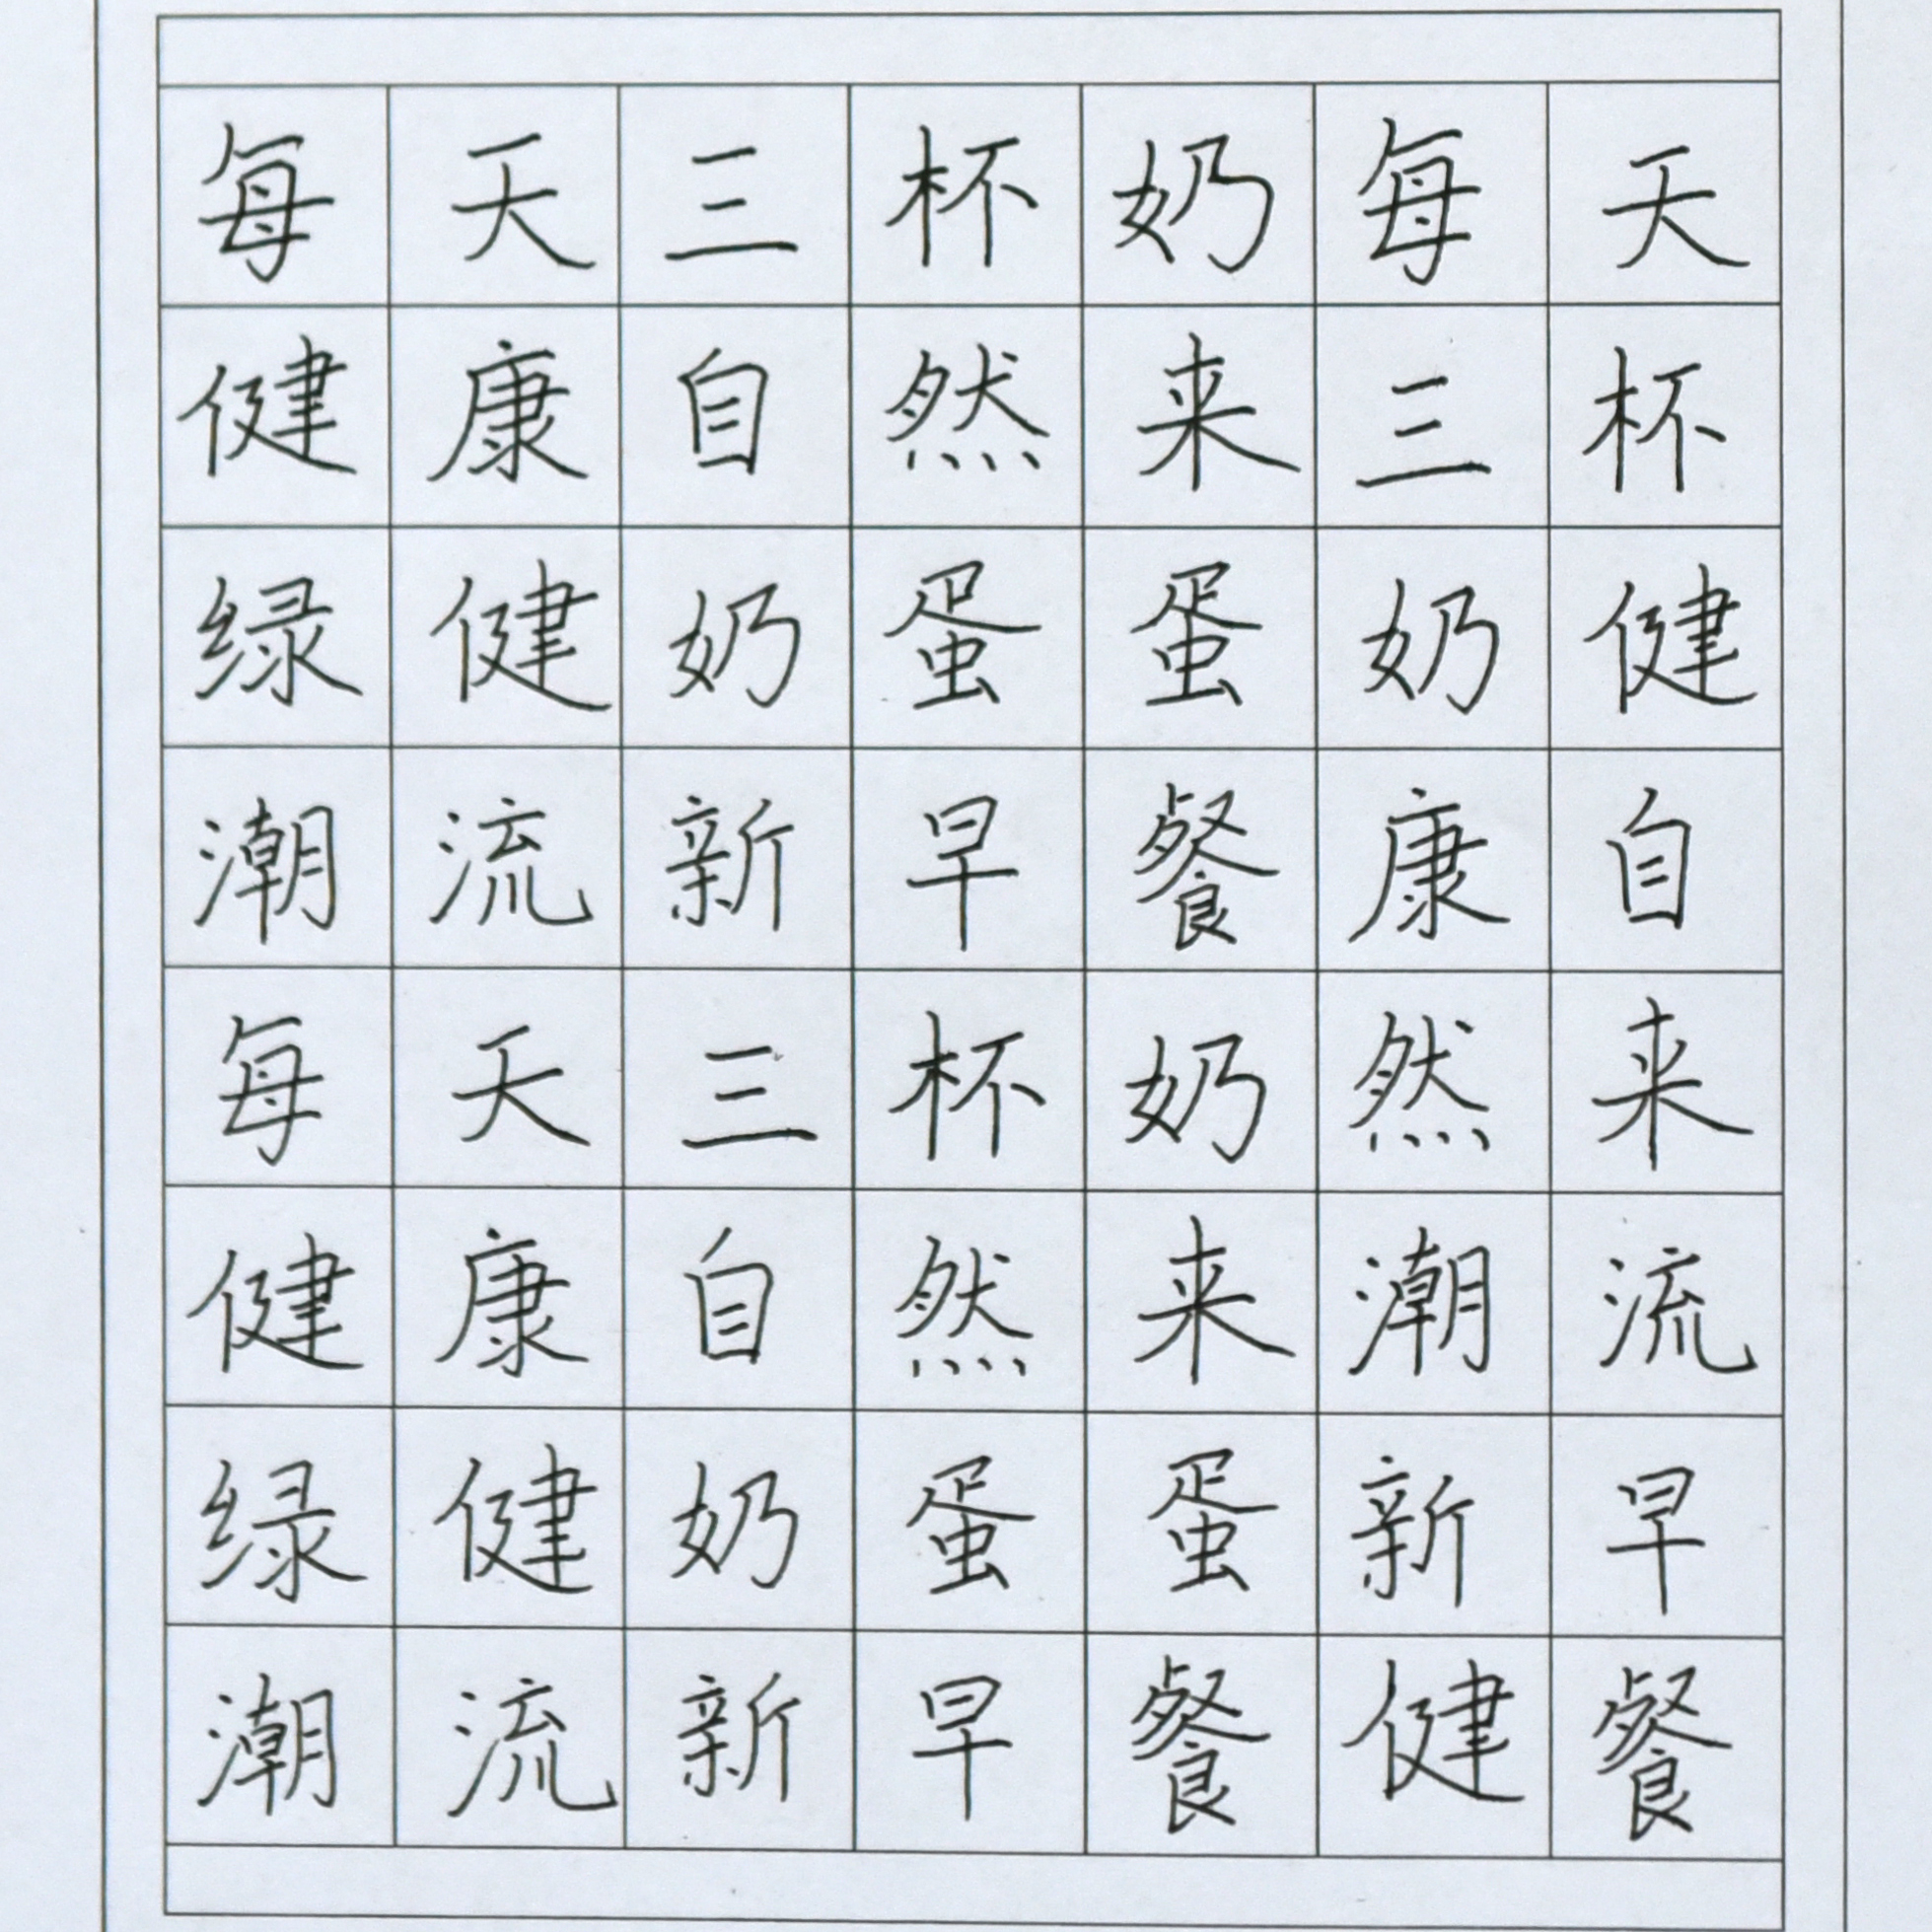 每天三杯奶每天
健康自然来三杯
绿健奶蛋蛋奶健
潮流新早餐康自
每天三杯奶然来
健康自然来潮流
绿健奶蛋蛋新早
潮流新早餐健餐